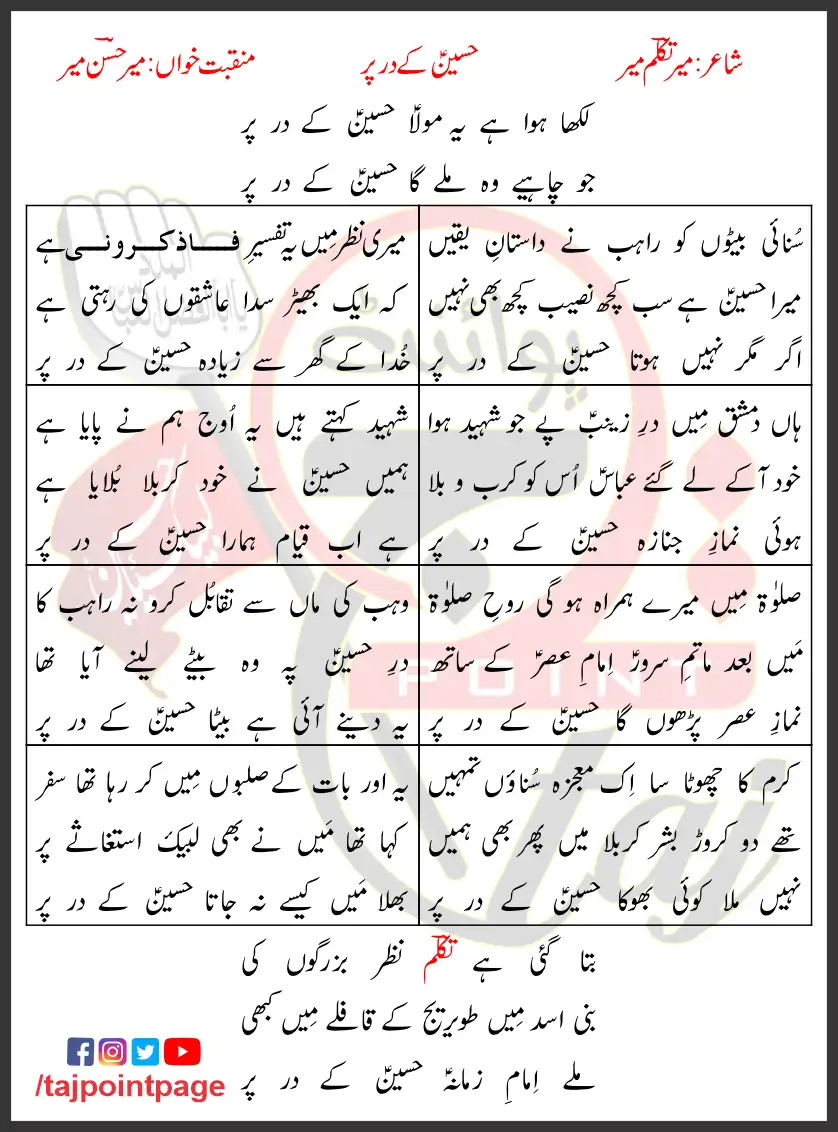 شاعر: میر تکلّم میر
حسینؑ کے در پر
منقبت خواں: میر حسن میر
لکھا ہوا ہے یہ مولاؑ حسینؑ کے در پر
جو چاہیے وہ ملے گا حسینؑ کے در پر
سُنائی بیٹوں کو راہب نے داستانِ یقیں
میرا حسینؑ ہے سب کچھ نصیب کچھ بھی نہیں
اگر مگر نہیں ہوتا حسینؑ کے در پر
میری نظر مِیں یہ تفسیرِ فاذکرونی ہے
کہ ایک بھیڑ سدا عاشقوں کی رہتی ہے
خُدا کے گھر سے زیادہ حسینؑ کے در پر
ہاں دمشق مِیں درِ زینبؑ پے جو شہید ہوا
خود آکے لے گئے عباسؑ اُس کو کرب و بلا
ہوئی نمازِ جنازہ حسینؑ کے در پر
شہید کہتے ہیں یہ اُوج ہم نے پایا ہے
ہمیں حسینؑ نے خود کربلا بُلایا ہے
ہے اب قیام ہمارا حسینؑ کے در پر
صلوٰۃ مِیں میرے ہمراہ ہو گی روحِ صلوٰۃ
مَیں بعد ماتمِ سرورؑ اِمامِ عصرؑ کے ساتھ
نمازِ عصر پڑھوں گا حسینؑ کے در پر
وہب کی ماں سے تقابُل کرو نہ راہب کا
درِ حسینؑ پہ وہ بیٹے لینے آیا تھا
یہ دینے آئی ہے بیٹا حسینؑ کے در پر
کرم کا چھوٹا سا اِک معجزہ سُناؤں تمہیں
تھے دو کروڑ بشر کربلا میں پھر بھی ہمیں
نہیں ملا کوئی بھوکا حسینؑ کے در پر
یہ اور بات کے صلبوں مِیں کر رہا تھا سفر
کہا تھا مَیں نے بھی لبیک استغاثے پر
بھلا مَیں کیسے نہ جاتا حسینؑ کے در پر
بتا گئی ہے تکلّم نظر بزرگوں کی
بنی اسد مِیں طویریج کے قافلے مِیں کبھی
ملے اِمامِ زمانہؑ حسینؑ کے در پر
/tajpointpage
پوائنٹ
POINT
taj